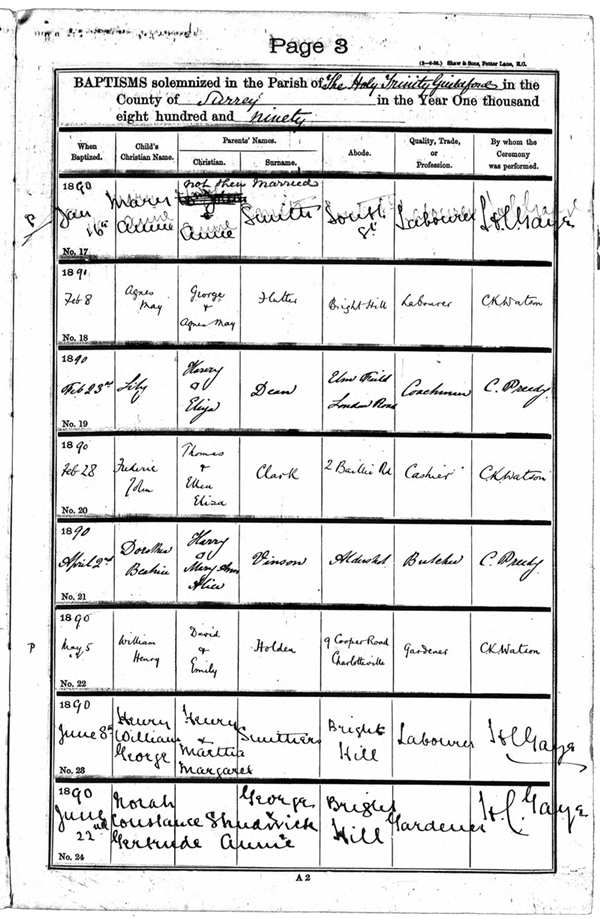 Page 3
Shaw & Sons, Fetter Lane, E.C.
BAPTISMS solemnized in the Parish of The Holy Trinity Guildford in the
County of Surrey in the Year One thousand
eight hundred and ninety
When Baptized. Child's Christian Name. Parents' Names. Christian. Surname. Abode. Quality, Trade, or Profession. By whom the Ceremony was performed.
not then married
1890 Jan 16th Mary Annie & Annie Smith South St Labourer H C Gaye
No. 17
P
1890 Feb 8 Agnes May George & Agnes May Bright Hill Labourer C K Watson
No. 18
1890 Feb 23rd Lily Harry & Eliza Dean Elm Field London Road Coachman C. Preedy
No. 19
1890 Feb 28 Frederic John Thomas & Ellen Eliza Clark 2 Baillie Rd Cashier C.K. Watson
No. 20
1890 April 2nd Dorothea Beatrice Harry & Mary Ann Alice Vinson Aldershot Butcher C. Preedy
No. 21
P
1890 May 5 William Henry David & Emily Holden 9 Cooper Road Charlotteville Gardener C K Watson
No. 22
1890 June 8th Henry William George Henry & Martha Margaret Smithers Bright Hill Labourer H C Gaye
No. 23
1890 June 22nd Norah Constance Gertrude George & Annie Shudwick Bright Hill Gardener H C. Gaye
No. 24
A 2